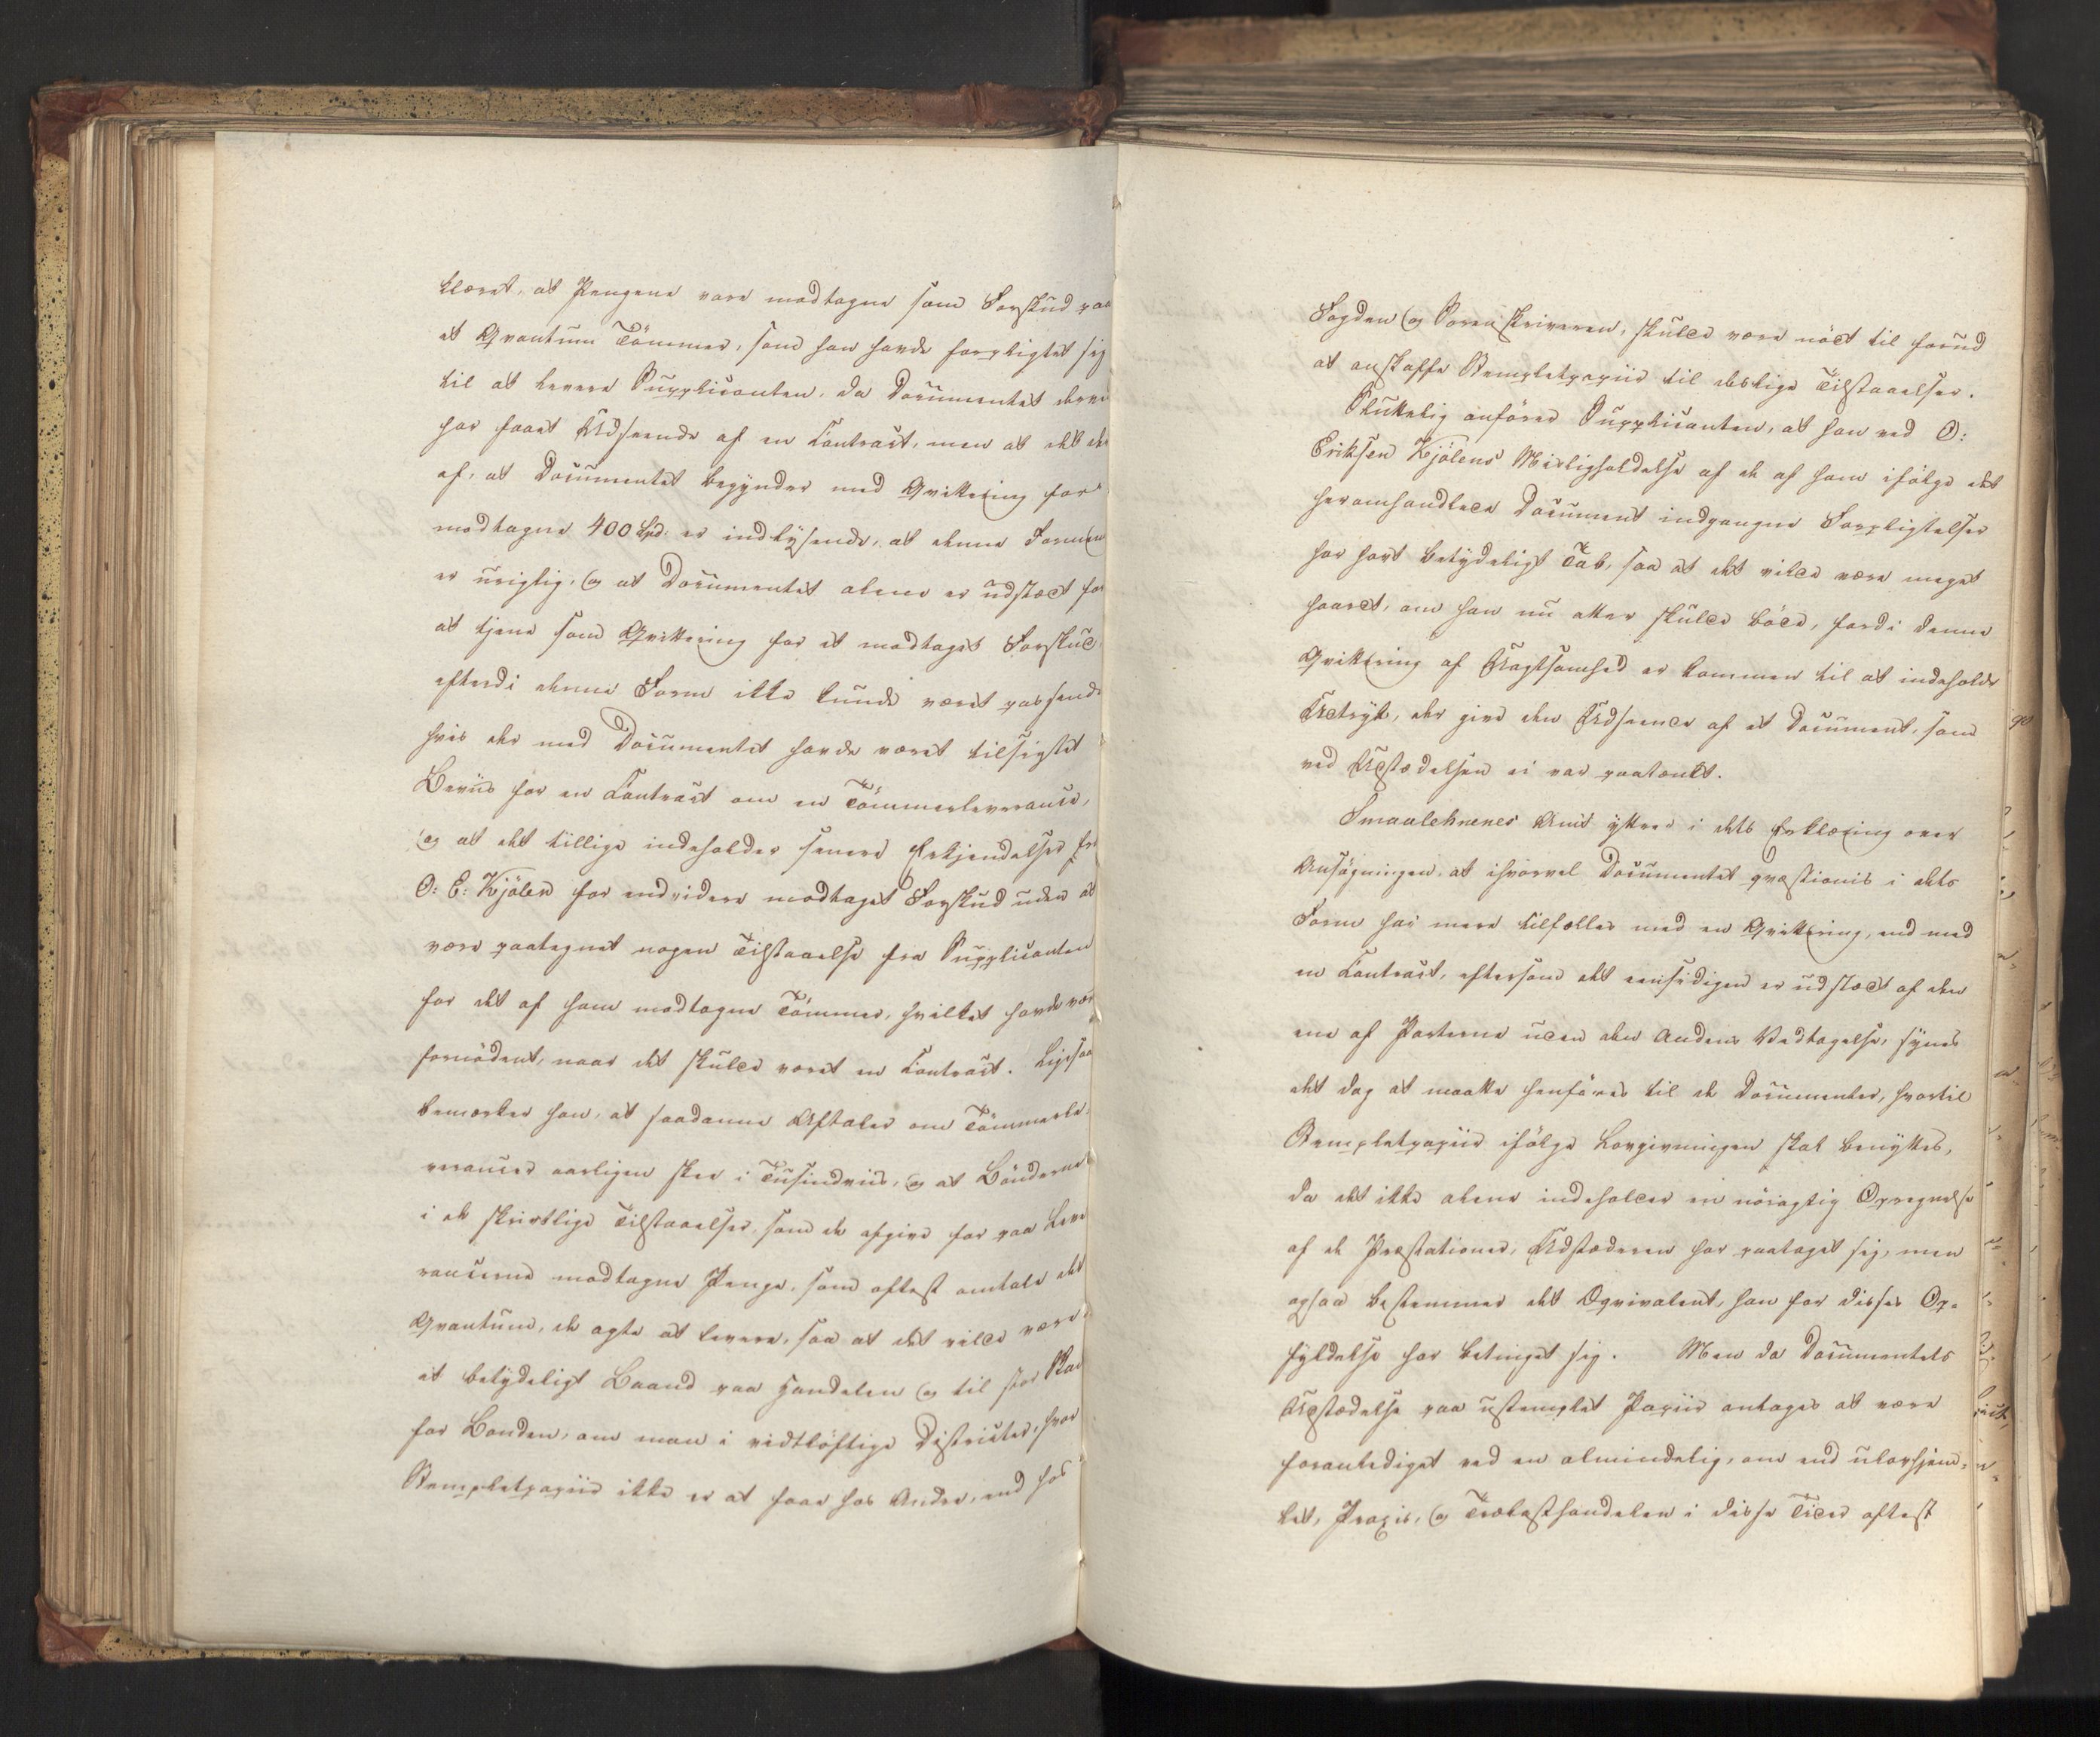 klæret, at Pengene vare modtagne som Forskud paa
et Qvantum Tømmer, som han havde forpligtet sig
til at levere Supplicanten, da Documentet derve
har faaet Udseende af en Contract, men at det der
af, at Documentet begynder med Qvittering for
modtagne 400 Spd. er indlysende, at denne Formen
er urigtig, og at Documentet alene er udstædt for
at tjene som Qvittering for et modtaget Forskud
efterdi denne Form ikke kunde været passende
hvis der med Documentet havde været tilsigtet
Beviis for en Contract om en Tømmerleverance,
og at det tillige indeholder senere Erkjendelser fra
O: E: Kjølen for endvidere modtaget Forskud uden at
være paategnet nogen Tilstaaelse fra Supplicanten
for det af ham modtagne Tømmer, hvilket havde vær
fornødent, naar det skulde været en Contract. Ligesaa
bemærker han, at saadanne Aftaler om Tømmerle-
verancer aarligen skee i Tusindviis, og at Bønderne
i de skriftlige Tilstaaelser, som de afgive for paa Leve
rancerne modtagne Penge, som oftest omtale det
Qvantum, de agte at levere, saa at det vilde være
et betydeligt Baand paa Handelen og til stor Skad
for Bonden, om man i vidtløftige Districter, hvor
Stempletpapiir ikke er at faae hos Andre, end hos
Fogden og Sorenskriveren, skulde være nødt til forud
at anskaffe Stempletpapiir til deslige Tilstaaelser.
Sluttelig anfører Supplicanten, at han ved O:
Eriksen Kjølens Misligholdelse af de af ham ifølge det
heromhandlede Document indgangne Forpligtelser
har havt betydeligt Tab, saa at det vilde være meget
haardt, om han nu atter skulde bøde, fordi denne
Qvittering af Uagtsomhed er kommen til at indeholde
Udtryk, der give den Udseende af et Document, som
ved Udstædelsen ei var paatænkt.
Smaalehnenes Amt yttrer i dets Erklæring over
Ansøgningen, at ihvorvel Documentet qvæstionis i dets
Form har mere tilfælles med en Qvittering, end med
en Contract, eftersom det eensidigen er udstædt af den
ene af Parterne uden den Andens Vedtagelse, synes
det dog at maatte henføres til de Documenter, hvortil
Stempletpapiir ifølge Lovgivningen skal benyttes,
da det ikke alene indeholder en nøiagtig Opregnelse
af de Præstationer, Udstæderen har paataget sig, men
ogsaa bestemmer det Æqvivalent, han for disses Op-
fyldelse har betinget sig. Men da Documentets
Udstædelse paa ustemplet Papiir antages at være
foranlediget ved en almindelig, om end ulovhjem-
let, Praxis, og Trælasthandelen i disse Tider oftest